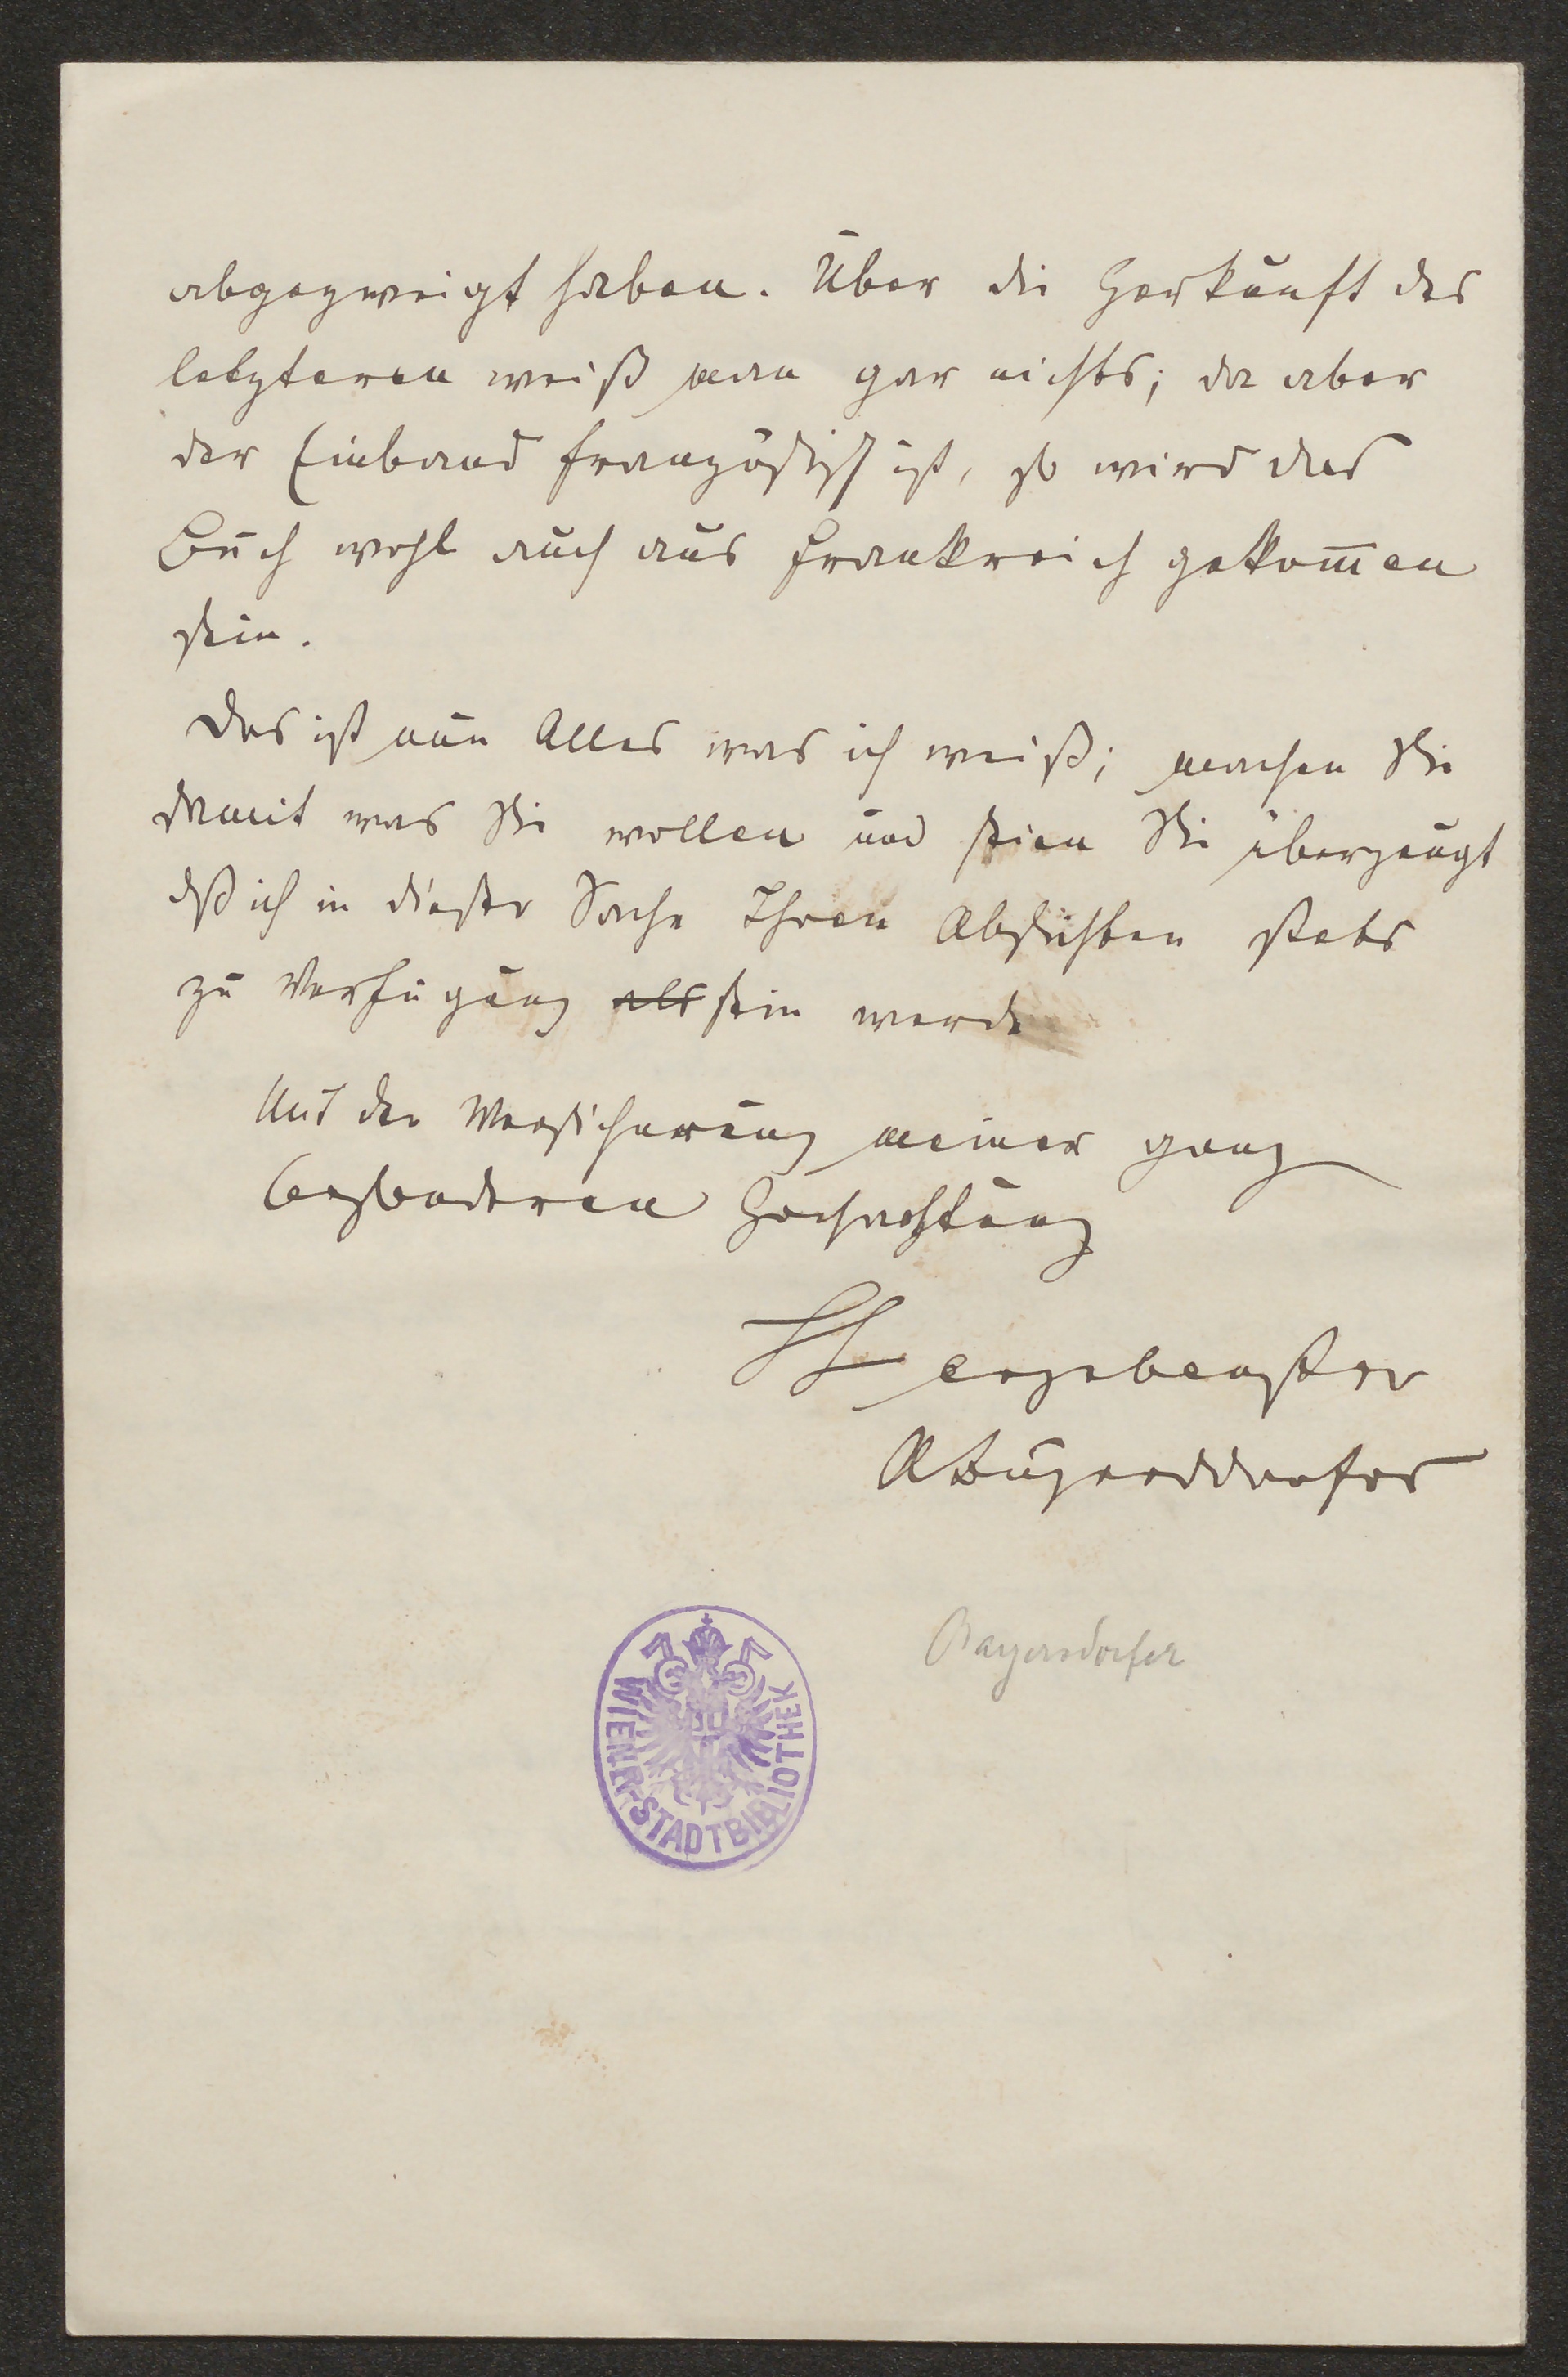 abgezweigt haben. Über die Herkunft des
letzteren weiß man gar nichts; da aber
der Einband französisch ist, so wird das
Buch wohl auch aus Frankreich gekom̄en
sein.
Das ist nun Alles was ich weiß; machen Sie
damit was Sie wollen und seien Sie überzeugt
dß ich in dieser Sache Ihren Absichten stets
zu Verfügung als sein werde
Mit der Versicherung meiner ganz
besonderen Hochachtung
Ihr ergebenster
ABayersdorfer
Bayersdorfer
WIENER-STADTBIBLIOTHEK